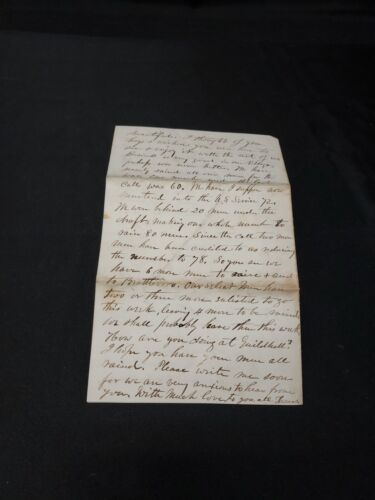 beautiful. I thought of you
boys & wished you were here to
see & enjoy it with the rest of us
perhaps
call was 60. We have I suppose now
mustered into the U.S. Service 72.
We were behind 20 men under the
draft making our whole number to
raise 80 men. Since the call two more
men have been credited to us reducing
the number to 78. So you see we
have 6 more men to raise & send
to Brattleboro. Our select men have
two or three more enlisted to go
this week, leaving 4 more to be raised
we shall probably have them this week
How are you doing at Guildhall?
I hope you have your men all
raised. Please write me soon
for we are very anxious to hear from
you. With much love to you all